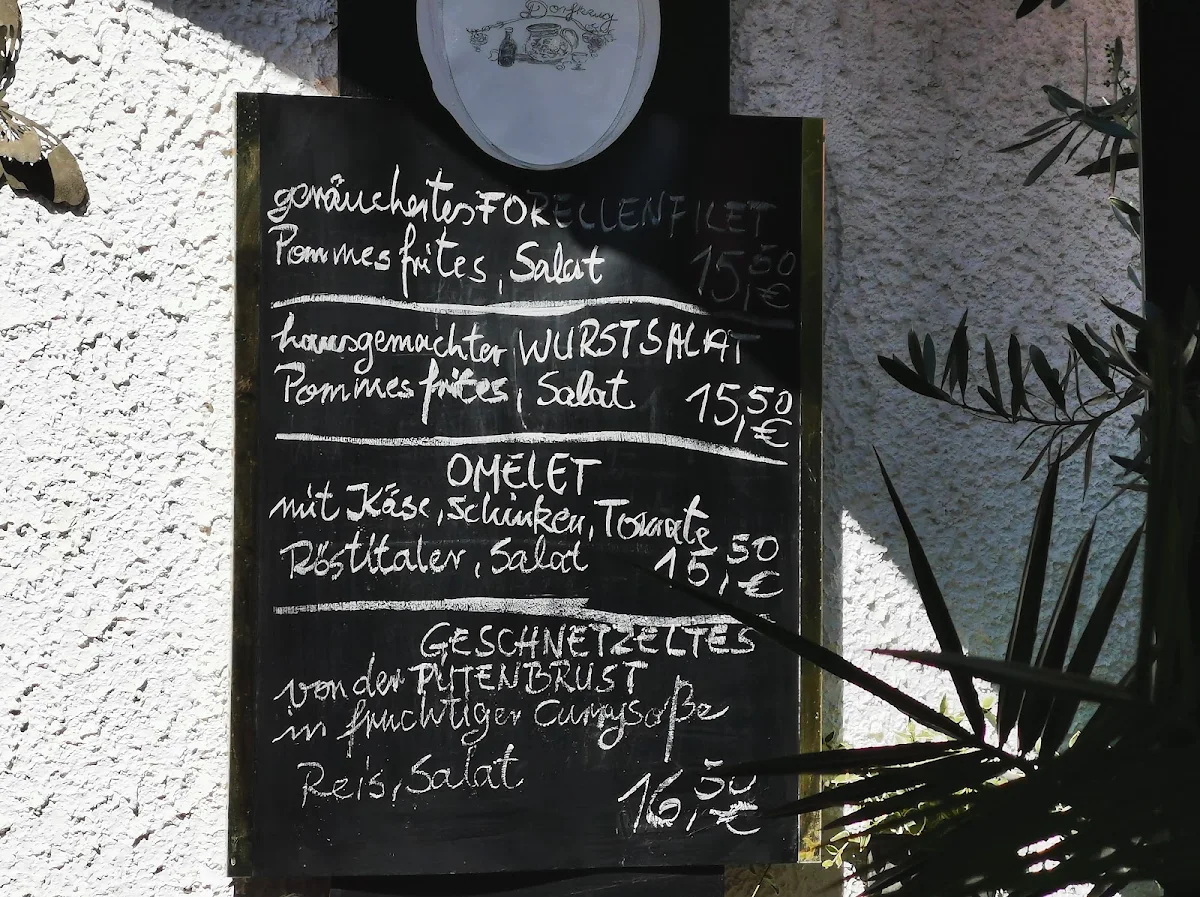 Dorfkrug
geräuchertes FORELLENFILET
Pommes frites, Salat 15,50 €
hausgemachter WURSTSALAT
Pommes frites, Salat 15,50 €
OMELET
mit Käse, Schinken, Tomate
Röstitaler, Salat 15,50 €
GESCHNETZELTES
von der PUTENBRUST
in fruchtiger Currysoße
Reis, Salat 16,50 €